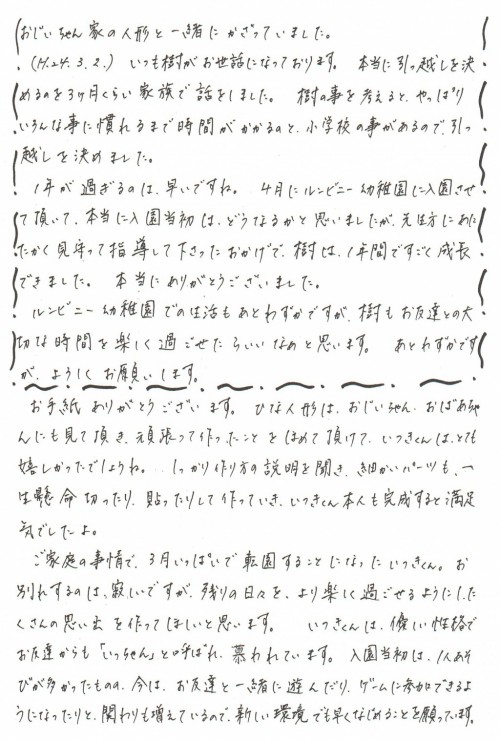 おじいちゃん家の人形と一緒にかざっていました。
(H.24.3.2.) いつも樹がお世話になっております。 本当に引っ越しを決
めるのを3ヶ月くらい家族で話をしました。 樹の事を考えると、やっぱり
いろんな事に慣れるまで時間がかかるのと、小学校の事があるので、引っ
越しを決めました。
1年が過ぎるのは、早いですね。 4月にルンビニー幼稚園に入園させ
て頂いて、本当に入園当初は、どうなるかと思いましたが、先生方にあた
たかく見守って指導して下さったおかげで、樹は、1年間ですごく成長
できました。 本当にありがとうございました。
ルンビニー幼稚園での生活もあとわずかですが、樹もお友達との大
切な時間を楽しく過ごせたらいいなぁと思います。 あとわずかです
が、よろしくお願いします。
お手紙ありがとうございます。 ひな人形は、おじいちゃん、おばあちゃ
んにも見て頂き、頑張って作ったことをほめて頂けて、いつきくんは、とても
嬉しかったでしょうね。 しっかり作り方の説明を聞き、細かいパーツも、一
生懸命切ったり、貼ったりして作っていき、いつきくん本人も完成すると満足
気でしたよ。
ご家庭の事情で、3月いっぱいで転園することになったいつきくん。 お
別れするのは、寂しいですが、残りの日々を、より楽しく過ごせるようにし、た
くさんの思い出を作ってほしいと思います。 いつきくんは、優しい性格で
お友達からも「いっちゃん」と呼ばれ、慕われています。 入園当初は、1人あそ
びが多かったものの、今は、お友達と一緒に遊んだり、ゲームに参加できるよ
うになったりと、関わりも増えているので、新しい環境でも早くなじめることを願っています。